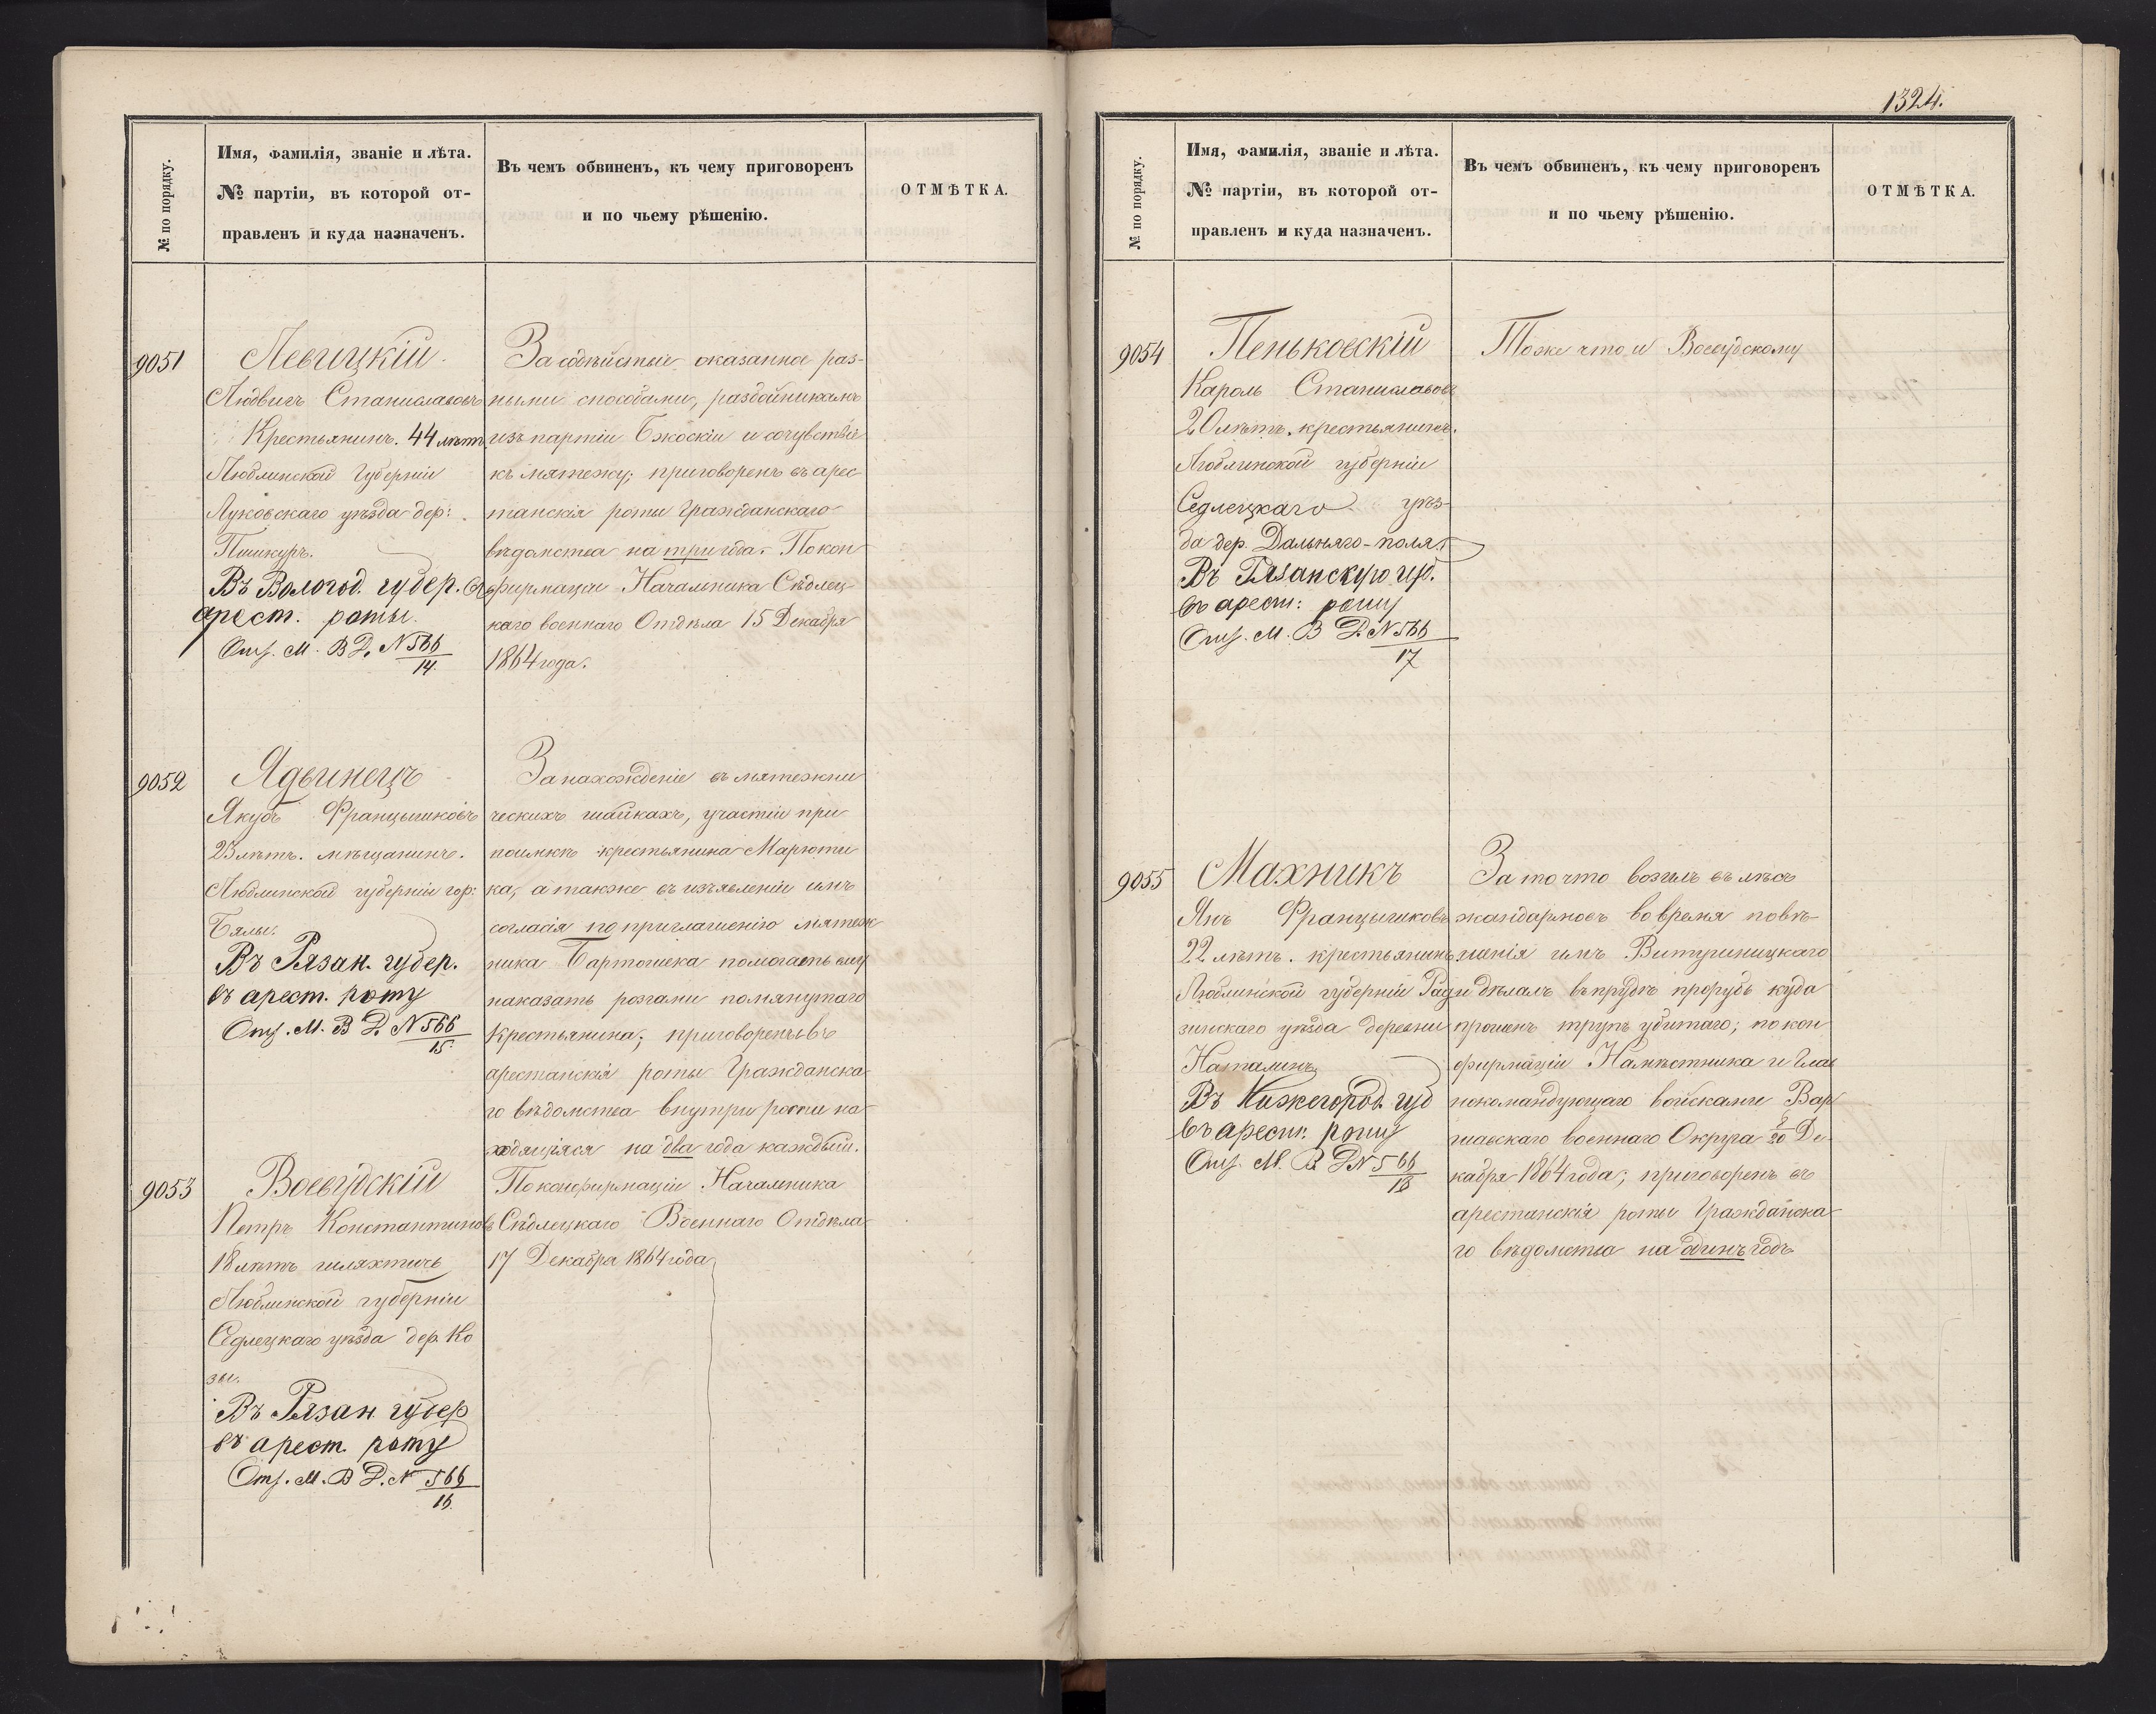 1324.
№ по порядку.
Имя, фамилія, званіе и лѣта.
№ партіи, въ которой от-
правленъ и куда назначенъ.
Въ чемъ обвиненъ, къ чему приговоренъ
и по чьему рѣшенію.
ОТМѢТКА.
9051
Левицкій
Людвигъ Станиславовъ
Крестьянинъ. 44 лѣтъ
Люблинской Губерніи
Луковскаго уѣзда дер:
Въ Вологод. губер. въ
арест. роты.
Отз. М. В Д. N 566
14.
За содѣйствіе оказанное раз-
ными способами, разбойникамъ
изъ партіи Бжоскіи и сочувствіе
къ мятежу; приговоренъ въ арес-
танскія роты Гражданскаго
вѣдомства на три года. По кон
фирмаціи Начальника Сѣдлец-
каго военнаго Отдѣла 15 Декабря
1864 года.
9052
Ядвинецъ
Якубъ Францышковъ
23 лѣтъ. мѣщанинъ.
Люблинской губерніи гор:
Бялы.
Въ Рязан. губер.
въ арест. роту
Отз. М. В Д. N 566
15.
За нахожденіе въ мятежни
ческихъ шайкахъ, участіи при
поимкѣ крестьянина Марюти
ка, а также въ изъявленіи имъ
согласія по приглашенію мятеж
ника Бартошека помогать ему
наказать розгами помянутаго
крестьянина; приговорены въ
арестанскія роты Гражданска-
го вѣдомства внутри россіи на-
ходящіяся на два года каждый.
По конфирмаціи Начальника
Сѣдлецкаго Военнаго Отдѣла
17 Декабря 1864 года
9053
Воевудскій
Петръ Константиновъ
18 лѣтъ шляхтичъ
Люблинской губерніи
Седлецкаго уѣзда дер. Ко
зы.
Въ Рязан. губер
въ арест. роту
Отз. М. В Д. N 566
16.
№ по порядку.
Имя, фамилія, званіе и лѣта.
№ партіи, въ которой от-
правленъ и куда назначенъ.
Въ чемъ обвиненъ, къ чему приговоренъ
и по чьему рѣшенію.
ОТМѢТКА.
9054
Пеньковскій
Кароль Станиславовъ
20 лѣтъ. крестьянинъ.
Люблинской губерніи
Седлецкаго уѣз-
да дер. Дальняго-поля.
Въ Рязанскую губ.
въ арест: роту
Отз. М. В Д. N 566
17
Тоже что и Воевудскому
9055
Махникъ
Янъ Францышковъ
22 лѣтъ. крестьянинъ
Люблинской губерніи Рад
зинскаго уѣзда деревни
Наталинъ
Въ Нижегород. губ
въ арест. роту
Отз. М. В Д N 566
18
За то что возилъ въ лѣсъ
жандармовъ во время повѣ-
шенія имъ Витушицкаго
и дѣлалъ въ прудѣ прорубь куда
трупъ убитаго; по кон
фирмаціи Намѣстника и Глав
нокомандующаго войсками Вар
шавскаго военнаго Округа 8/20 Де-
кабря 1864 года; приговоренъ въ
арестанскія роты Гражданска-
го вѣдомства на одинъ годъ